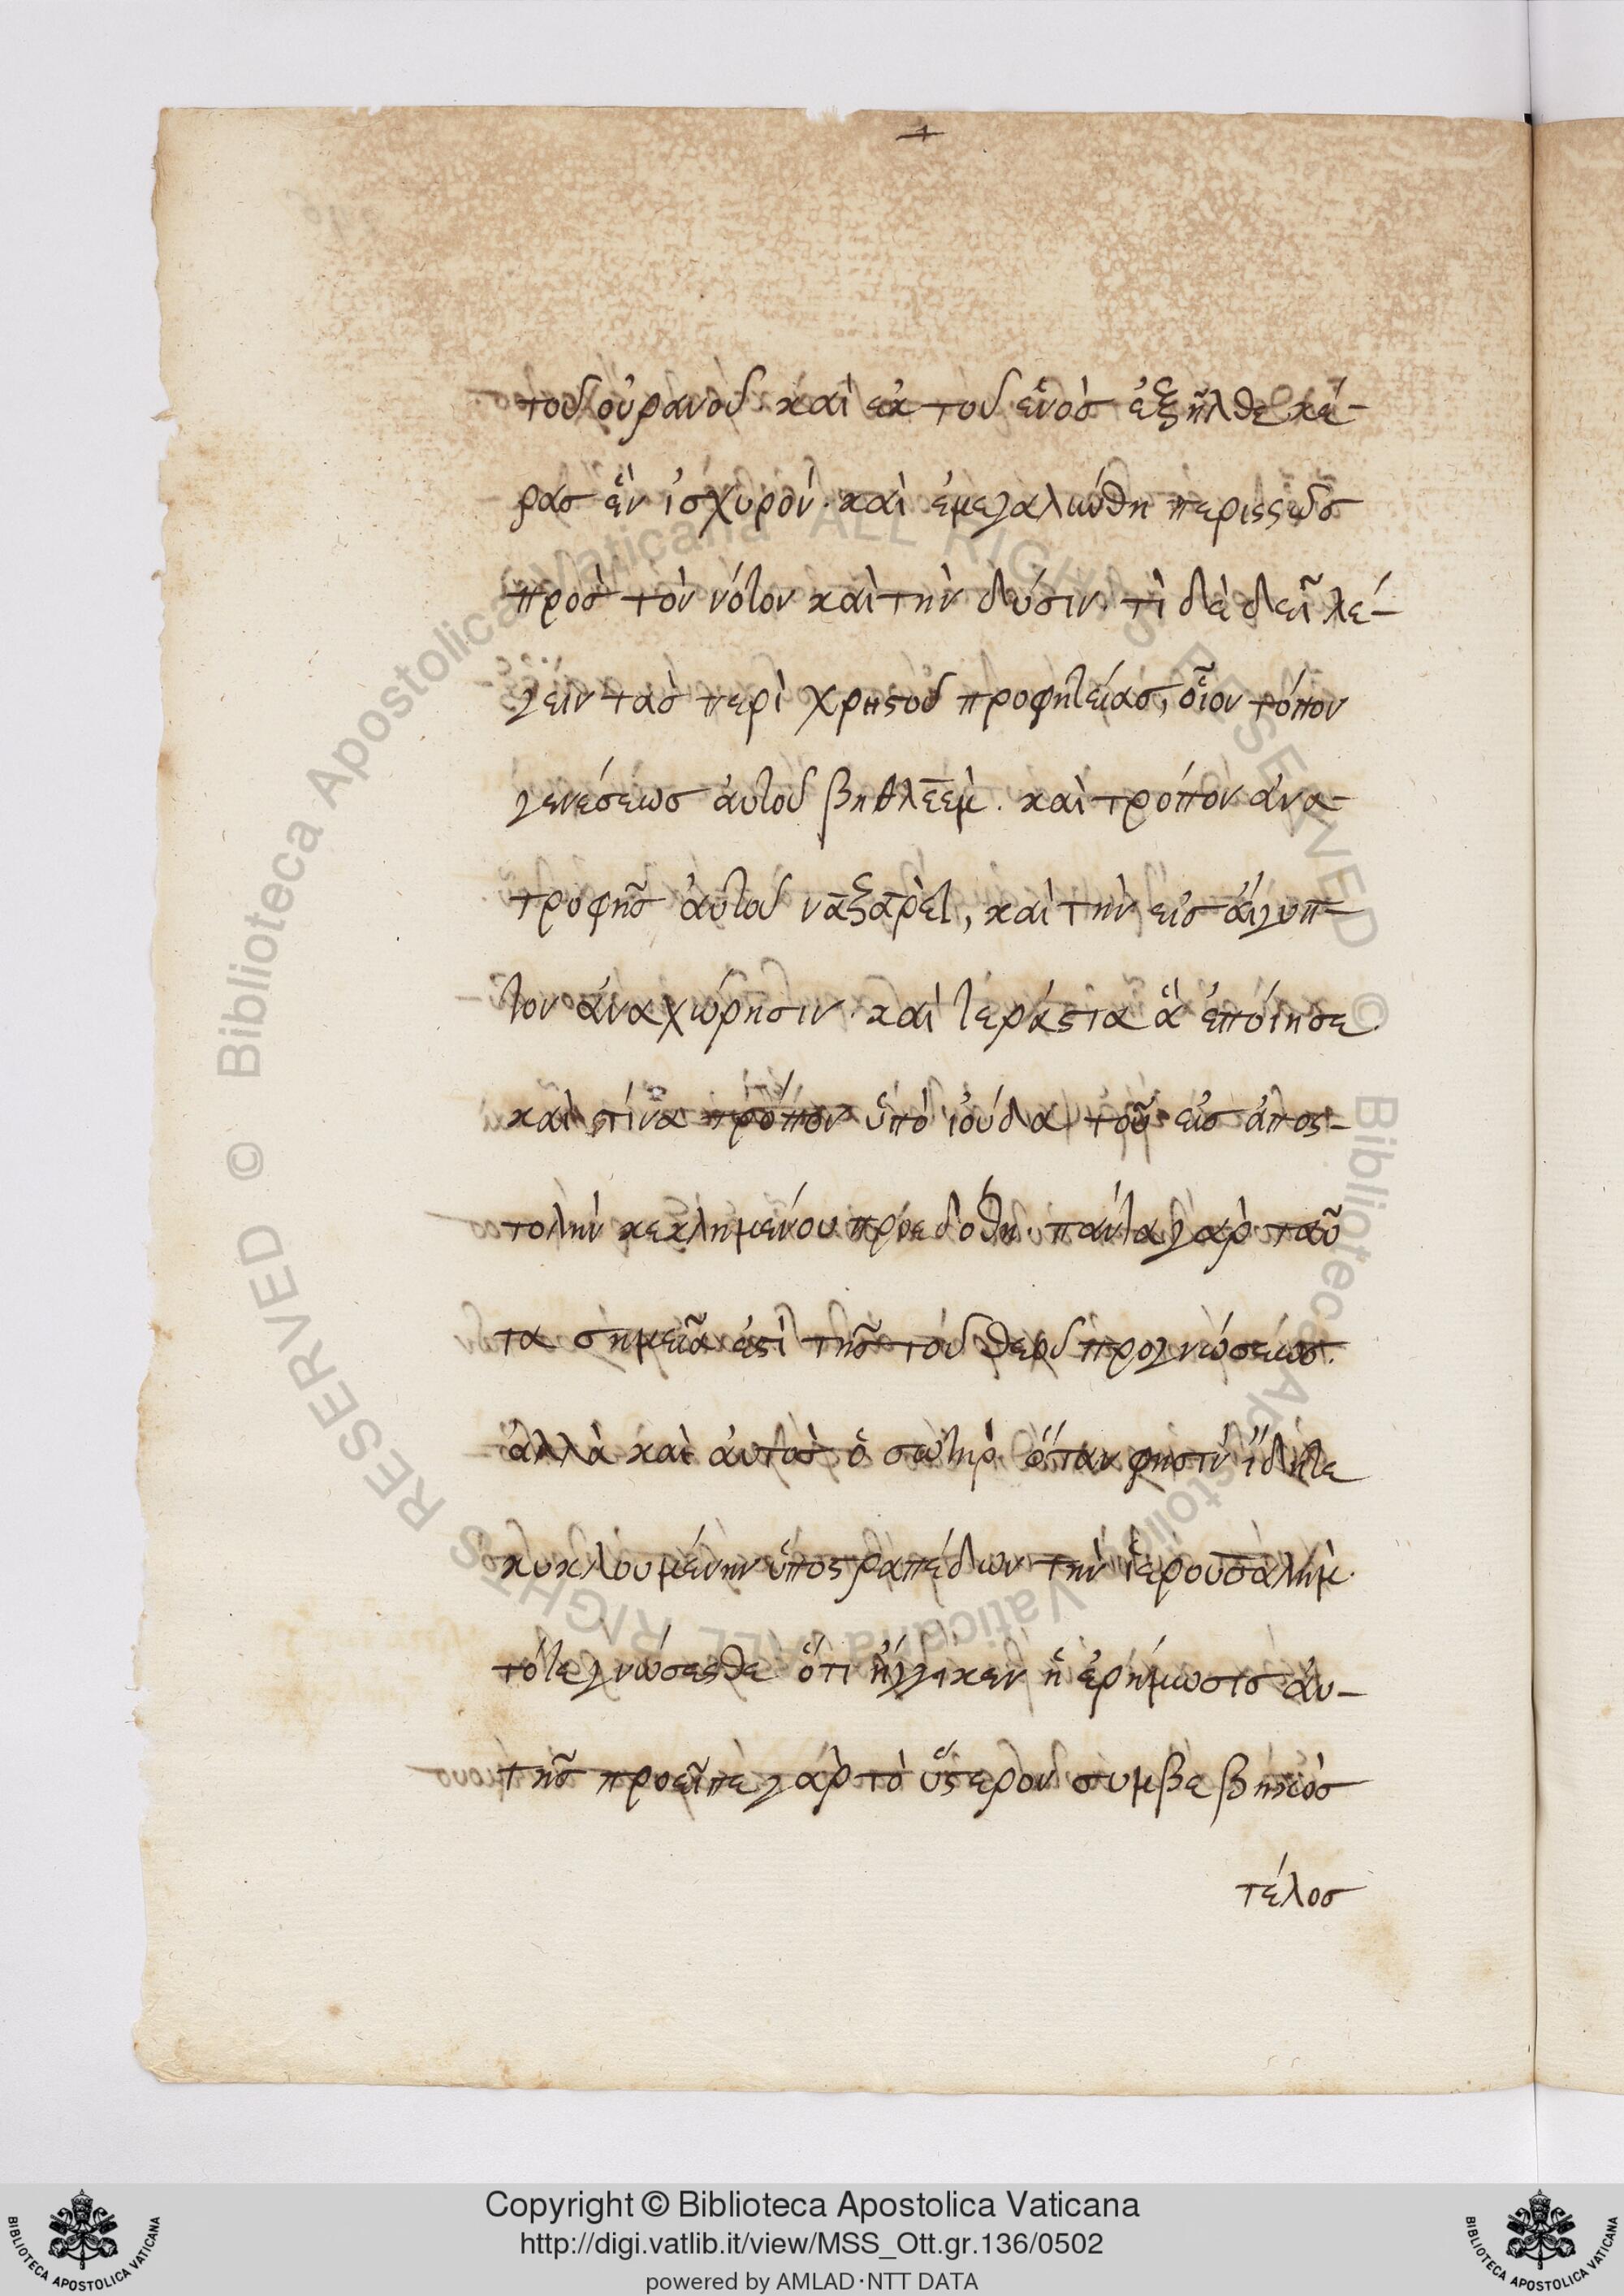 τοῦ οὐρανοῦ καὶ ἐκ τοῦ ἑνὸσ ἐξῆλθε κέ-
ρασ ἓν ἰσχυρὸν. καὶ ἐμεγαλύνθη περισσῶσ
πρὸσ τὸν νότον καὶ τὴν δύσιν. τὶ δὲ δεῖ λέ-
γειν τὰσ περὶ χρηστοῦ προφητείασ, οἷον τόπον
γενέσεωσ ἀυτοῦ βηθλεὲμ. καὶ τρόπον ἀνα-
τροφῆσ ἀυτοῦ ναξαρὲτ, καὶ τὴν εἰσ ἄιγυπ-
τον ἀναχώρησιν. καὶ τεράστια ἃ ἐπόιησε
καὶ τίνα τρόπον ὑπὸ ἰούδα τοῦ εἰσ ἀποσ-
τολὴν κεκλημένου προεδόθη. πάντα γὰρ ταῦ
τα σημεῖα ἐστὶ τῆσ τοῦ θεοῦ προγνώσεωσ.
ἀλλὰ καὶ ἀυτὸσ ὁ σωτὴρ. ὅταν φησὶν ἴδητε
κυκλουμένην ὑπο στραπέδων τὴν ἱερουσαλὴμ.
τότε γνώσεσθε ὅτι ἤγγικεν ἡ ἐρήμωσισ ἀυ-
τῆσ προεῖπε γὰρ τὸ ὕστερον συμβεβηκὸσ
τέλοσ
© Biblioteca Apostolica Vaticana ALL RIGHTS RESERVED © Biblioteca Apostolica Vaticana ALL RIGHTS RESERVED
Copyright © Biblioteca Apostolica Vaticana
http://digi.vatlib.it/view/MSS_Ott.gr.136/0502
powered by AMLAD·NTT DATA
BIBLIOTECA APOSTOLICA VATICANA
BIBLIOTECA APOSTOLICA VATICANA